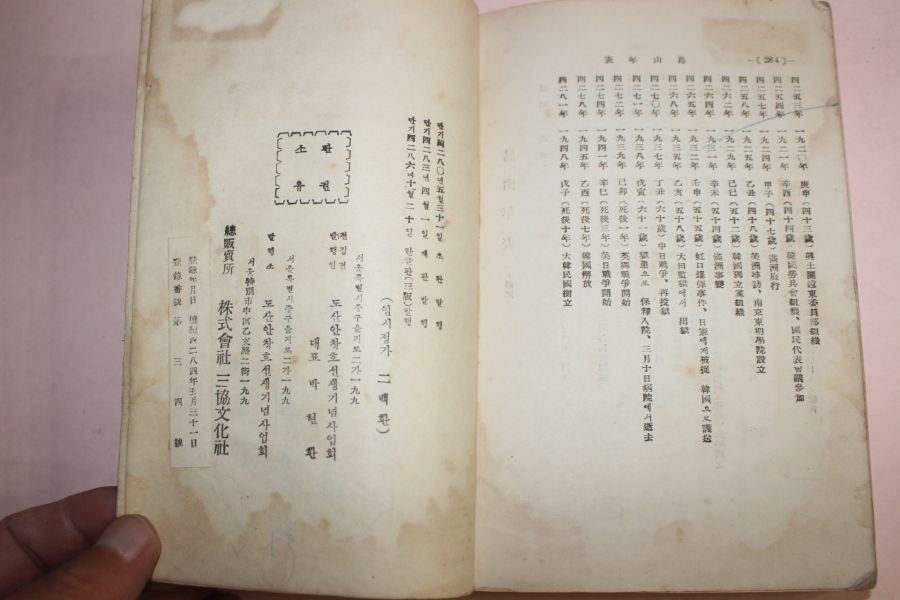 —(284)—
島山年表
四二五三年 一九二〇年 庚申(四十三歲) 興士團遠東委員部組織
四二五四年 一九二一年 辛酉(四十四歲) 韓國勞兵會組織、國民代表會議參加
四二五七年 一九二四年 甲子(四十七歲) 滿洲旅行
四二五八年 一九二五年 乙丑(四十八歲) 美洲 南京東明學院設立
四二六二年 一九二九年 己巳(五十二歲) 韓國獨立黨組織
四二六四年 一九三一年 辛未(五十四歲) 滿洲事變
四二六五年 一九三二年 壬申(五十五歲) 虹口爆彈事件、日憲에게被捉 韓國으로護送
四二六八年 一九三五年 乙亥(五十八歲) 大田監獄에서 出獄
四二七〇年 一九三七年 丁丑(六十歲) 中日戰爭、再投獄
四二七一年 一九三八年 戊寅(六十一歲) 獄患으로 保釋入院、三月十日病院에서逝去
四二七二年 一九三九年 己卯(死後一年) 英獨戰爭開始
四二七四年 一九四一年 辛巳(死後三年) 美日戰爭開始
四二七八年 一九四五年 乙酉(死後七年) 韓國解放
四二八一年 一九四八年 戊子(死後十年) 大韓民國樹立
단기四二八〇년五월三十一일 초판발행
단기四二八三년四월一일 재판발행
단기四二八六년十월二十일 한글판(三版)발행
(임시정가 二백환)
판권
소유
서울특별시중구을지로二가一九九
전집겸
발행인 도산안창호선생기념사업회
대표 박현환
서울특별시중구을지로二가一九九
발행소 도산안창호선생기념사업회
서울特別市中區乙支路二街一九九
總販賣所 株式會社 三協文化社
登錄年月日 檀紀四二八四年五月三十一日
登錄番號 第三四號